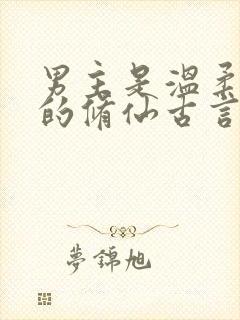 男主是温柔
的修仙古言
夢錦旭